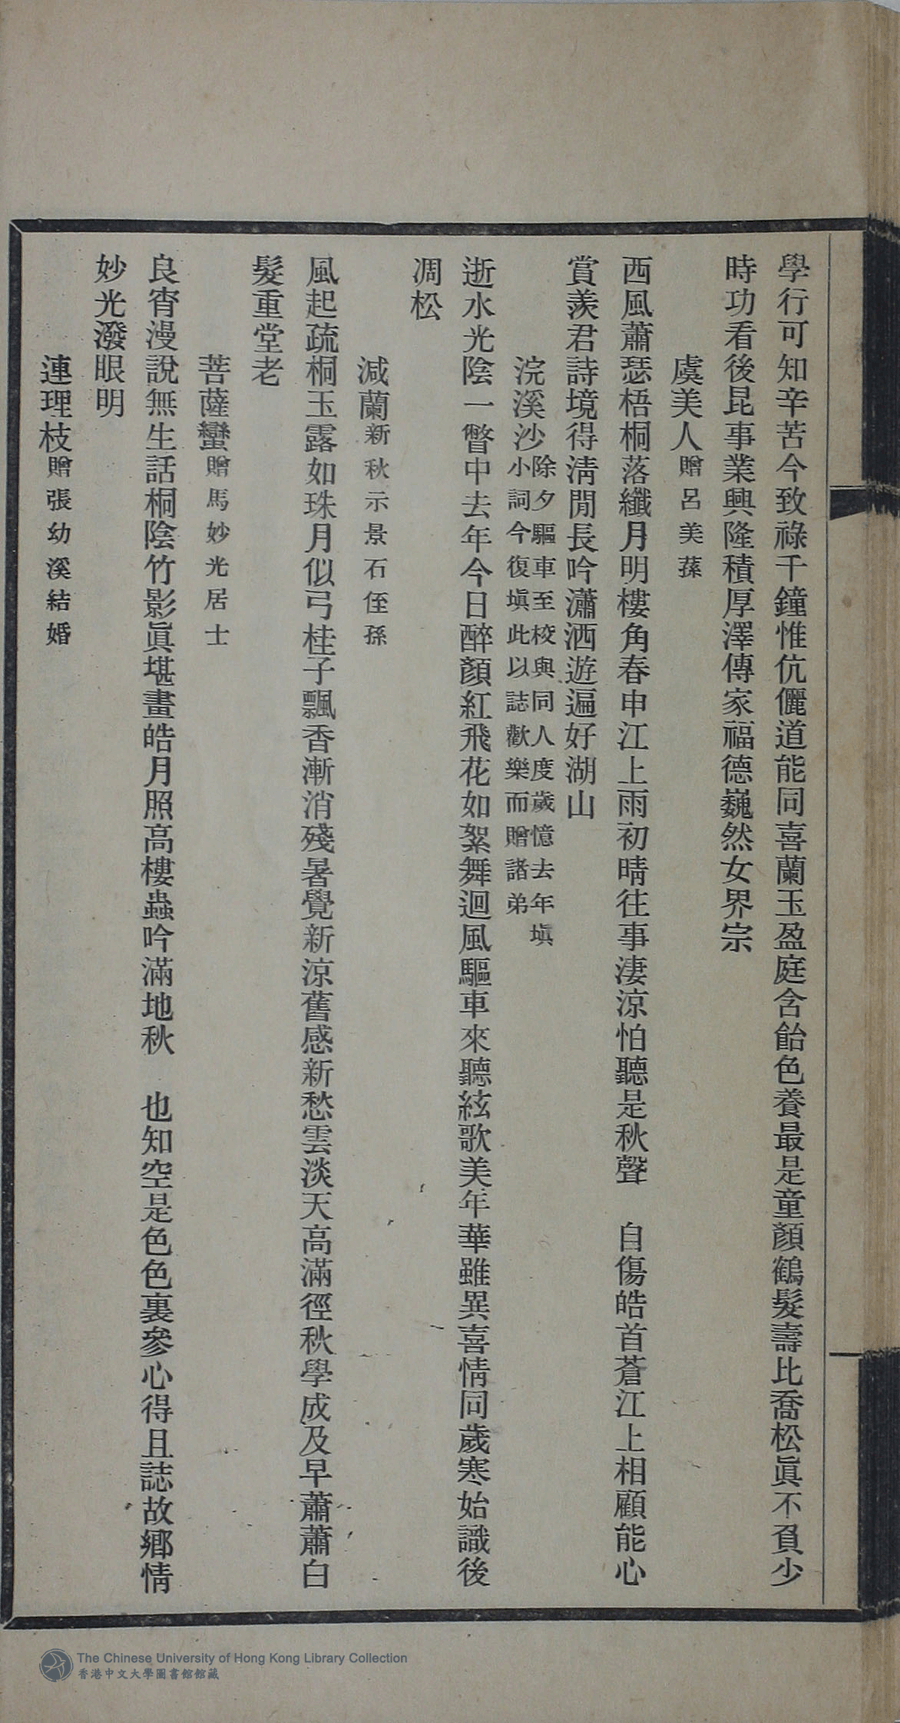 學行可知辛苦今致祿千鐘惟伉儷道能同喜蘭玉盈庭含飴色養最是童顏鶴髮壽比喬松眞不負少
時功看後昆事業興隆積厚澤傳家福德巍然女界宗
虞美人贈呂美蓀
西風蕭瑟梧桐落纖月明樓角春申江上雨初晴往事淒涼怕聽是秋聲　自傷皓首蒼江上相顧能心
賞羨君詩境得淸閒長吟瀟洒遊遍好湖山
浣溪沙除夕驅車至校與同人度歲憶去年塡
小詞今復塡此以誌歡樂而贈諮弟
逝水光陰一瞥中去年今日醉顏紅飛花如絮舞迴風驅車來聽絃歌美年華雖異喜情同歲寒始識後
凋松
減蘭新秋示景石侄孫
風起疏桐玉露如珠月似弓桂子飄香漸消殘暑覺新涼舊感新愁雲淡天高滿徑秋學成及早蕭蕭白
髮重堂老
菩薩蠻贈馬妙光居士
良宵漫說無生話桐陰竹影眞堪畫皓月照高樓蟲吟滿地秋　也知空是色色裏參心得且誌故鄉情
妙光潑眼明
連理枝贈張幼溪結婚
The Chinese University of Hong Kong Library Collection
香港中文大學圖書館館藏